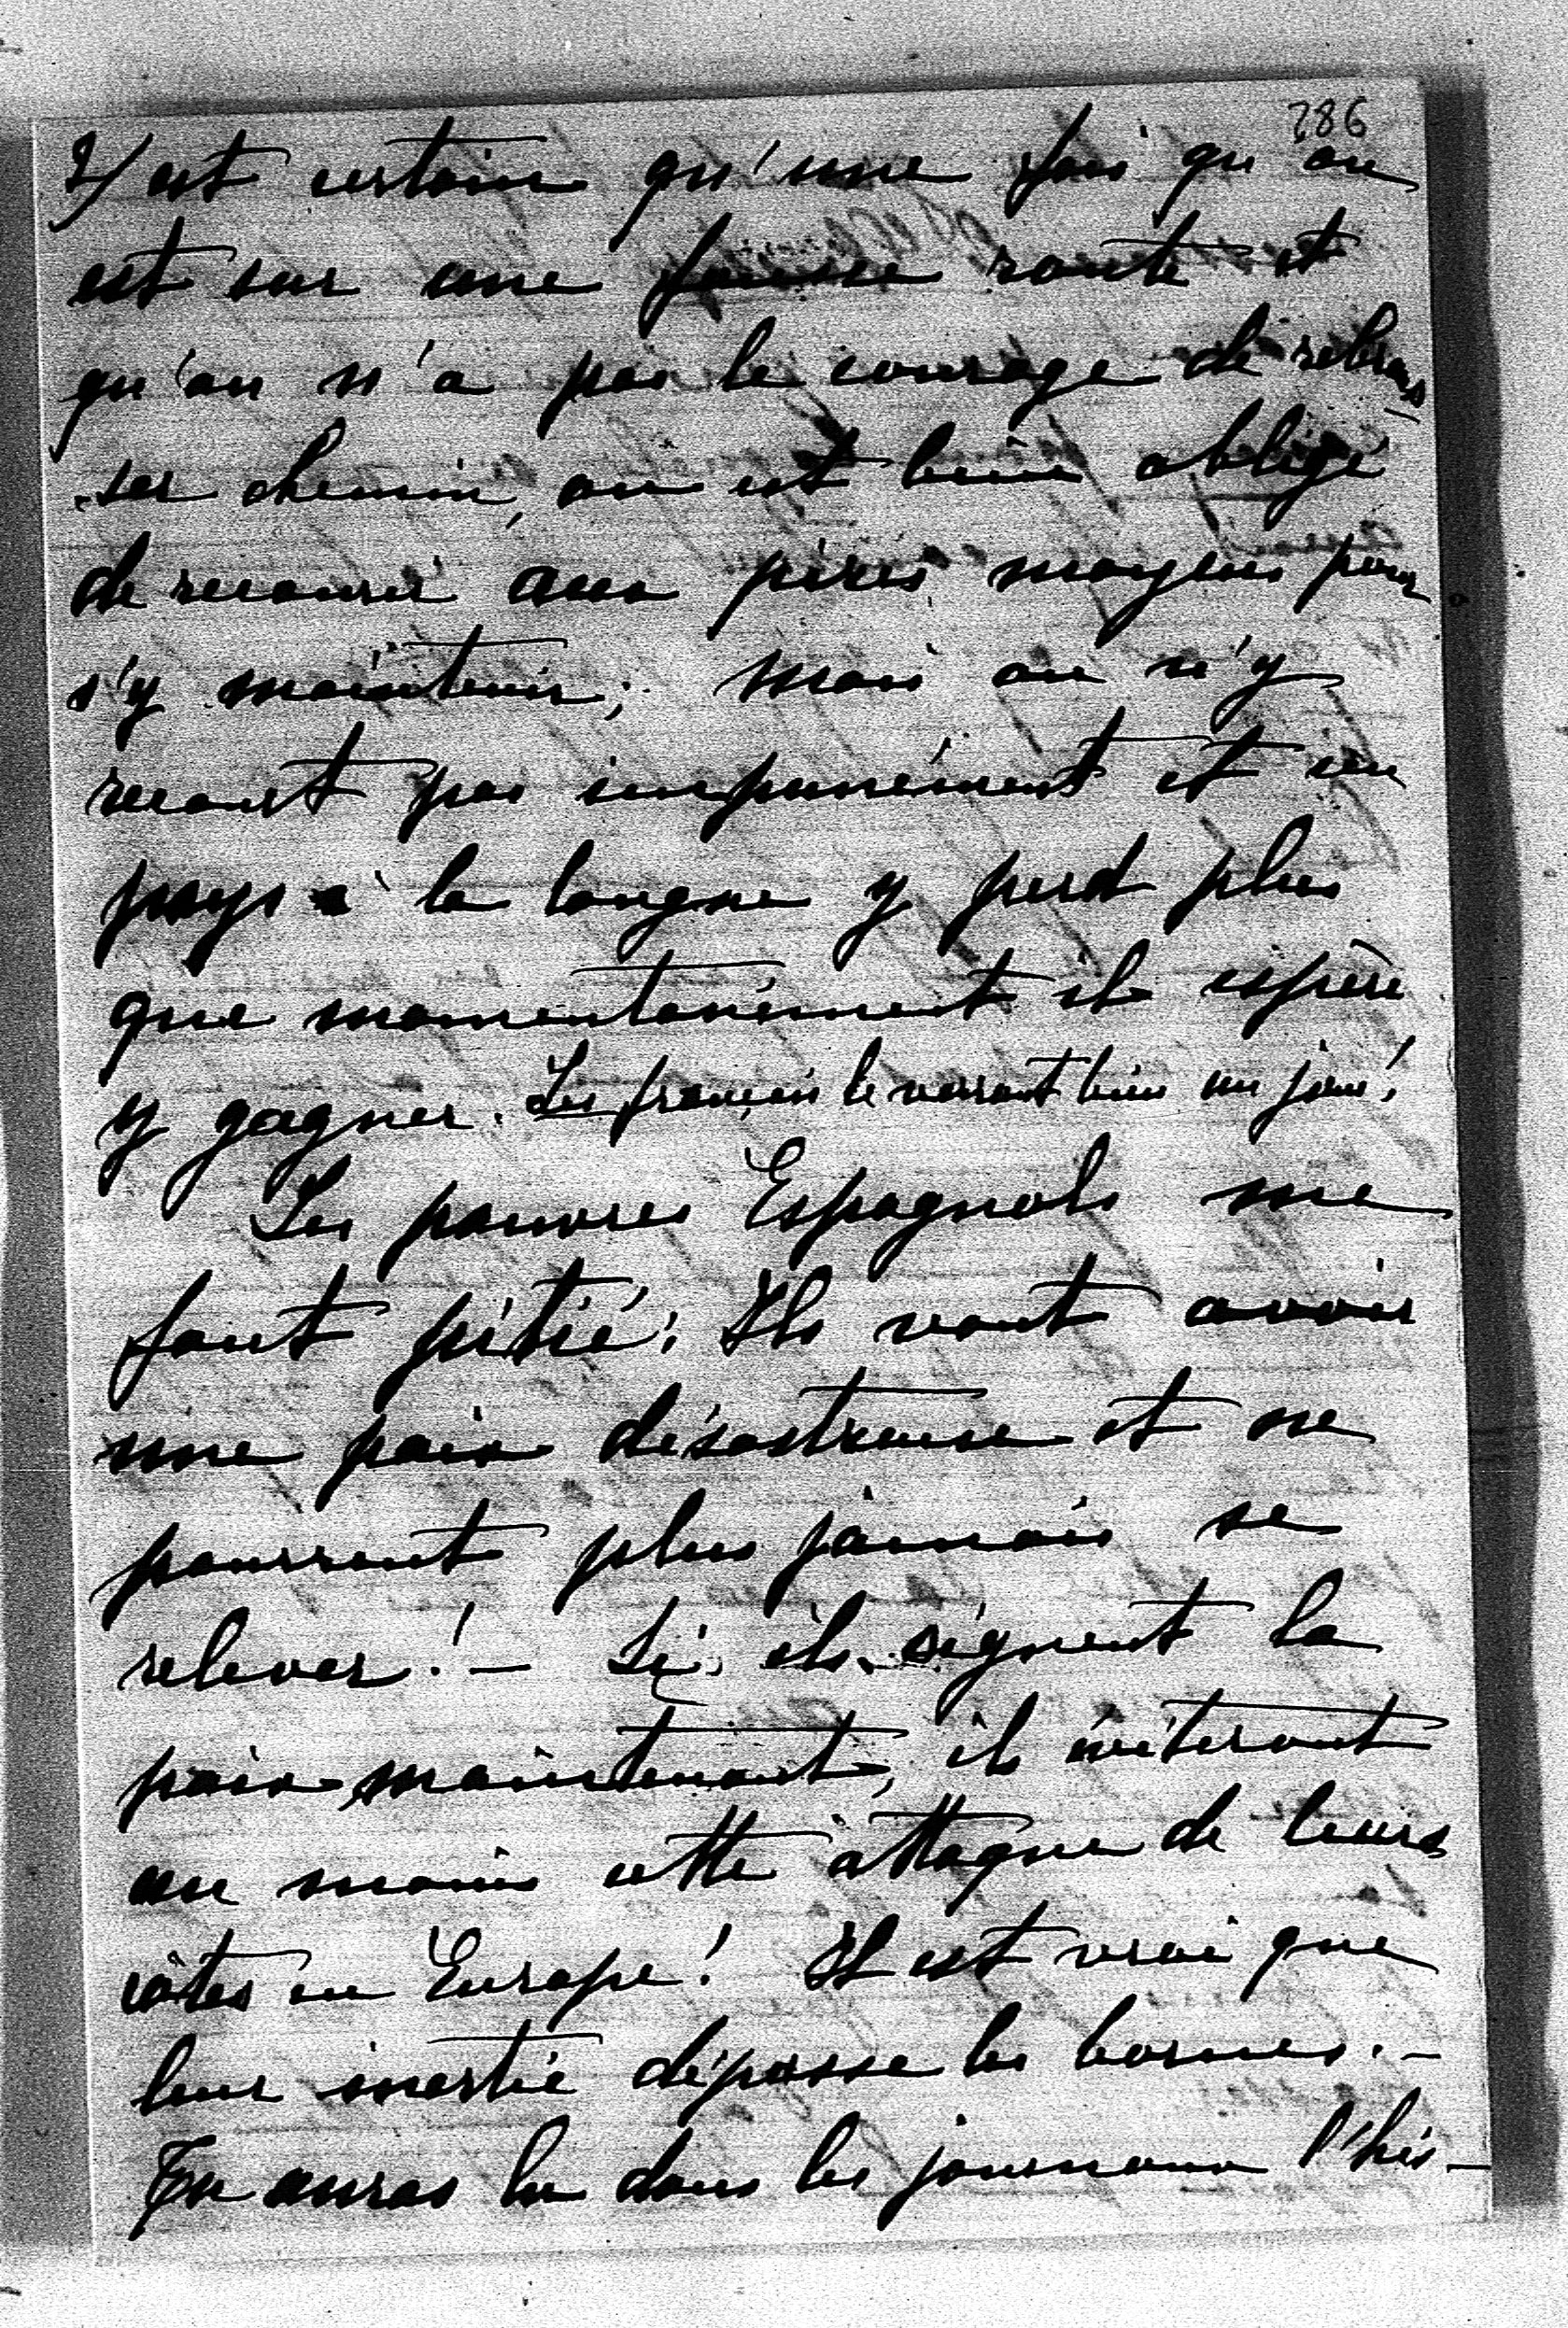 286
Il est certain qu'une fois qu'on
est sur une fausse route et
qu'on n'a pas le courage de rebrous-
ser chemin, on est bien obligé
de recourir aux pires moyens pour
s'y maintenir; mais on n'y
recourt pas impunément et un
pays à la longue y perd plus
que momentanément il espère
y gagner. Les français le verront bien un jour!
Les pauvres Espagnols me
font pitié: Ils vont avoir
une paix désastreuse et ne
pourront plus jamais se
relever! – Si ils signent la
paix maintenant, ils éviteront
au moins cette attaque de leurs
côtes en Europe! Il est vrai que
leur inertie dépasse les bornes. –
Tu auras lu dans les journaux l'his-